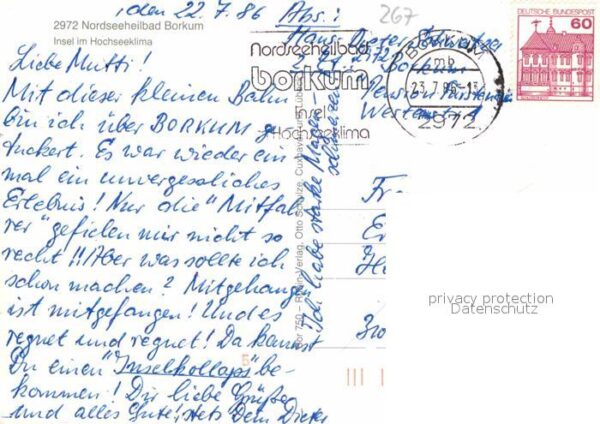 , den 22.7.86
Abs.:
267
2972 Nordseeheilbad Borkum
Insel im Hochseeklima
Hans-Dieter
2972 Borkum
Pension
DEUTSCHE BUNDESPOST
60
Nordseeheilbad
borkum
Insel
Hochseeklima
BORKUM
23.7.86-15
2972
Liebe Mutti!
Mit dieser kleinen Bahn
bin ich über BORKUM ge-
tuckert. Es war wieder ein-
mal ein unvergessliches
Erlebnis! Nur die "Mitfah-
rer" gefielen mir nicht so
recht!!! Aber was sollte ich
schon machen? Mitgehangen
ist mitgefangen! Und es
regnet und regnet! Da kannst
Du einen "Inselkollaps" be-
kommen! Dir liebe Grüße
und alles Gute, stets Dein Dieter
Ich habe starke Magen-
schmerzen
Verlag, Otto Schulze, Cuxhaven
Fr-
privacy protection
Datenschutz